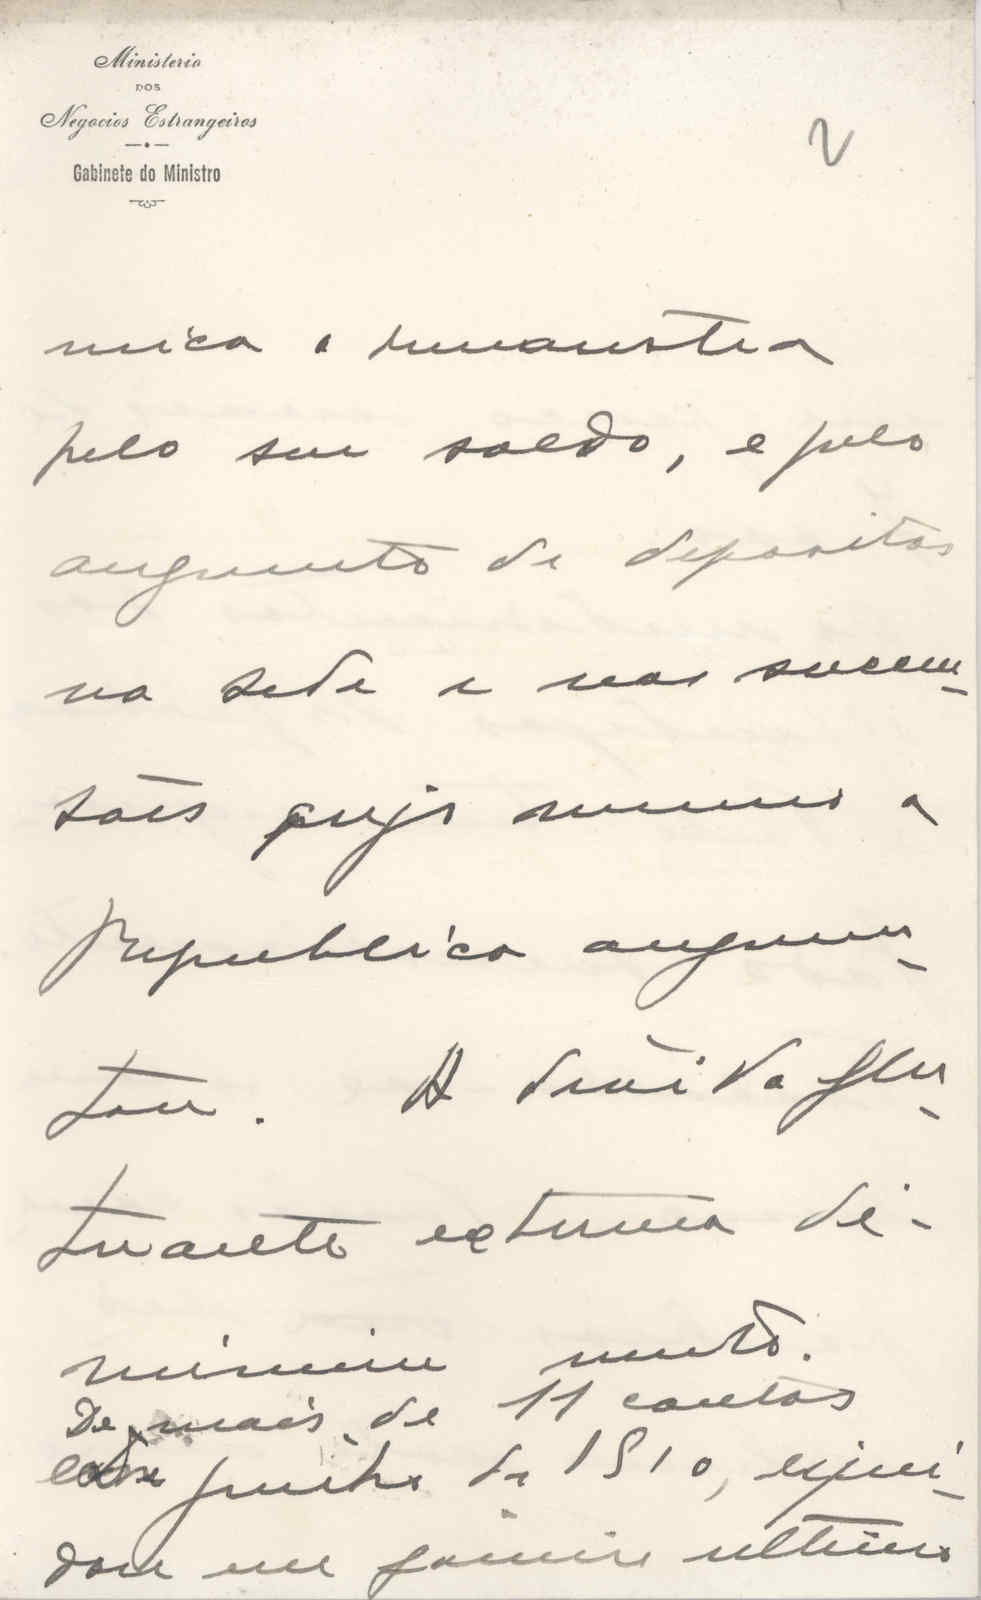 Ministerio
DOS
Negocios Estrangeiros
Gabinete do Ministro
2
mica demonstra
pelo seu saldo, e pelo
augmento de depositos
na sede e nas sucur-
saes cujo numero a
Republica augmen-
tou. A divida flu-
tuante externa di-
minuiu muito.
De mais de 11 contos
em junho de 1910,
dou em janeiro ultimo